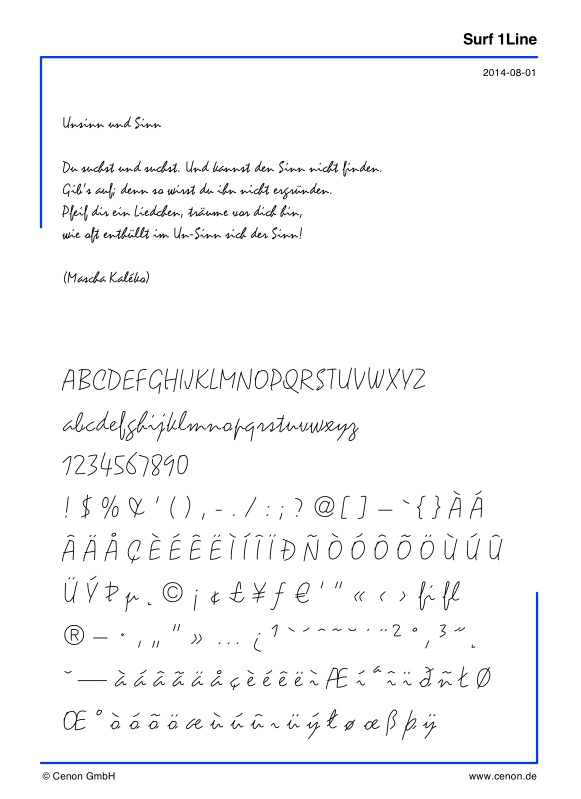 Surf 1Line
2014-08-01
Unsinn und Sinn
Du suchst und suchst. Und kannst den Sinn nicht finden.
Gib's auf; denn so wirst du ihn nicht ergründen.
Pfeif dir ein Liedchen, träume vor dich hin,
wie oft enthüllt im Un-Sinn sich der Sinn!
(Mascha Kaléko)
ABCDEFGHIJKLMNOPQRSTUVWXYZ
abcdefghijklmnopqrstuvwxyz
1234567890
! $ % & ' ( ) , - . / : ; ? @ [ ] – ` { } À Á
Â Ä Å Ç È É Ê Ë Ì Í Î Ï Ð Ñ Ò Ó Ô Õ Ö Ù Ú Û
Ü Ý Þ µ ¸ © ¡ ¢ £ ¥ ƒ € ' " « ‹ › fi fl
® – · ‚ „ " » … ¿ ¹ ` ´ ˆ ˜ ¯ ˘ ˙ ¨ ² ° ¸ ³ ˝ ˛
ˇ — à á â ã ä å ç è é ê ë ì Æ í ª î ï ð ñ ł Ø
Œ º ò ó õ ö æ ù ú û ı ü ý ł ø œ ß þ ÿ
© Cenon GmbH
www.cenon.de